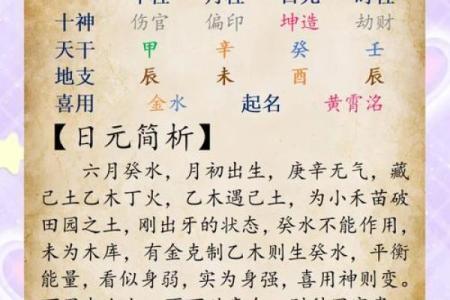 十神 伤官 偏印 坤造 劫财
天干 甲 辛 癸 壬
地支 辰 未 酉 辰
喜用 金水 起名 黄霄洺
【日元简析】
六月癸水，月初出生，庚辛无气，藏
己土乙木丁火，乙木遇己土，为小禾苗破
田园之土，刚出牙的状态，癸水不能作用，
未为木库，有金克制乙木则生癸水，平衡
能量，看似身弱，实为身强，喜用神则变。